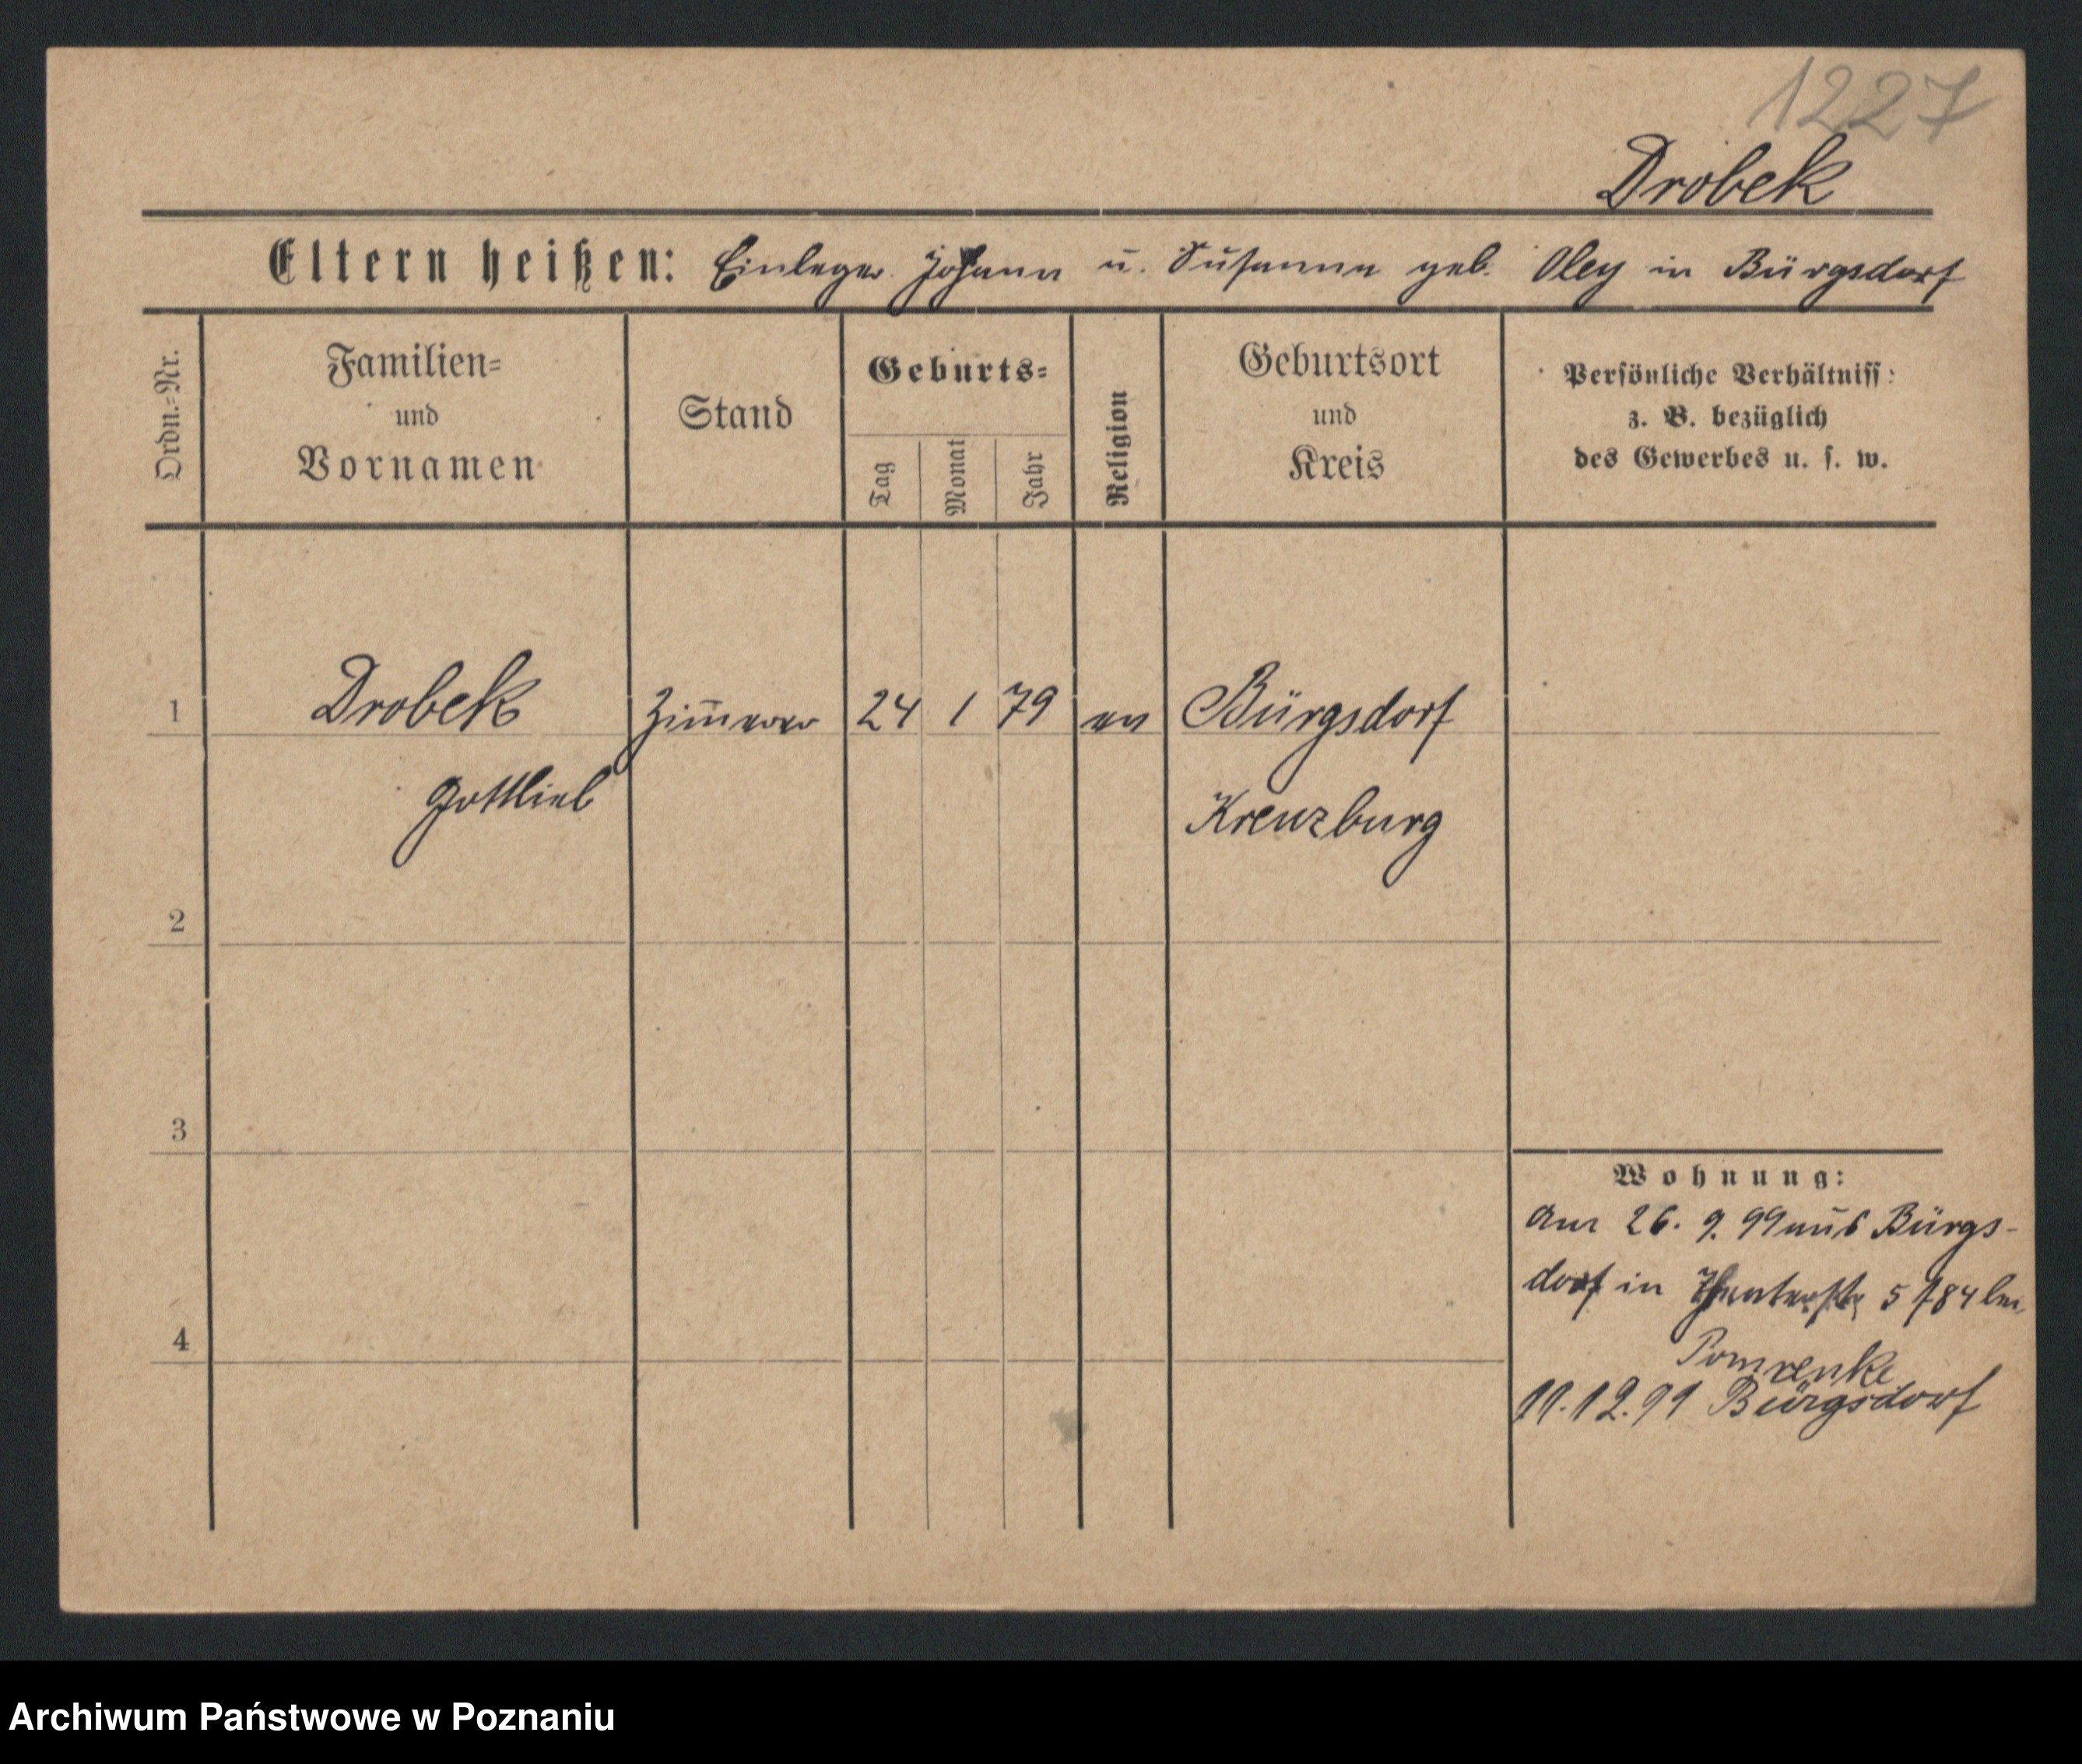 1227
Drobek
Eltern heißen: Einleger Johann u. Susanna geb. Oley in Bürgsdorf
Ordn.=Nr.
Familien=
und
Vornamen
Stand
Geburts=
Tag
Monat
Jahr
Religion
Geburtsort
und
Kreis
Persönliche Verhältniss:
z. B. bezüglich
des Gewerbes u. s. w.
1 Drobek Zim̅erer 24 1 79 ev Bürgsdorf
Gottlieb Kreuzburg
2
3
Wohnung:
Am 26. 9. 99 aus Bürgs-
dorf in 5 /84 bei
4
Pomrenke
11.12.99 Bürgsdorf
Archiwum Państwowe w Poznaniu